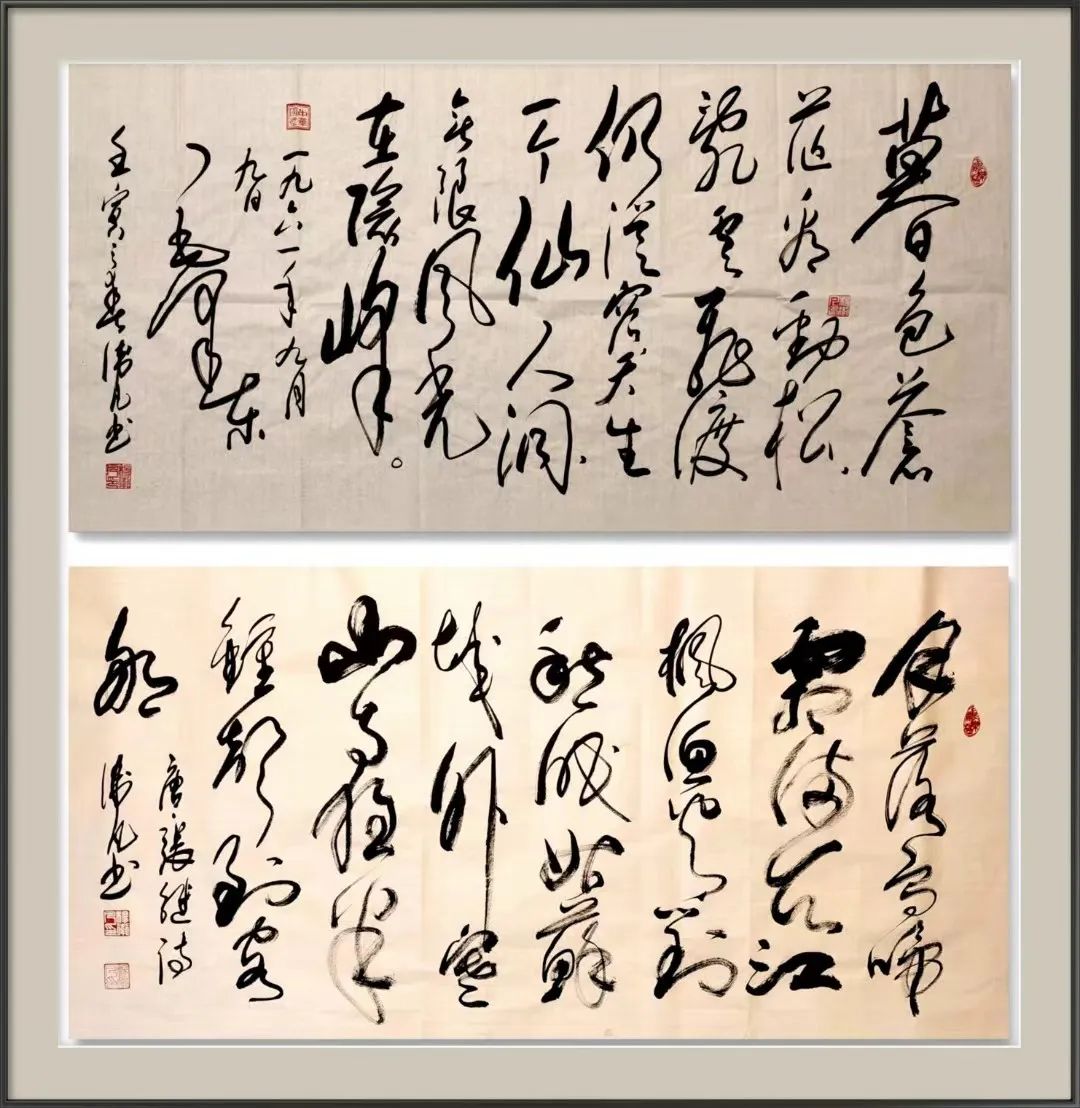 暮色蒼
茫看勁松、
亂雲飛渡
仍從容天生
一个仙人洞
無限風光
在險峰。
一九六一年九月
九日
毛澤東
壬寅之春凡书
月落烏啼
霜滿天江
楓漁火對
愁眠姑蘇
城外寒
山寺夜半
鐘聲到客
船
唐張繼詩
凡书